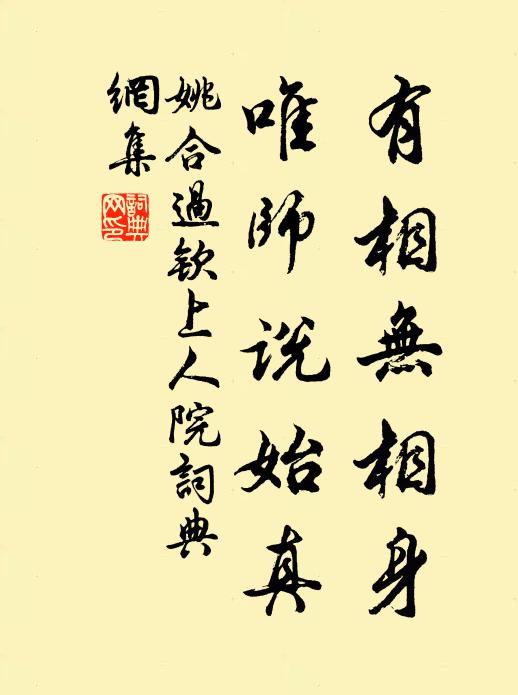 有相無相身
唯師說始真
姚合過欽上人院詞典
網集
詞典
网印